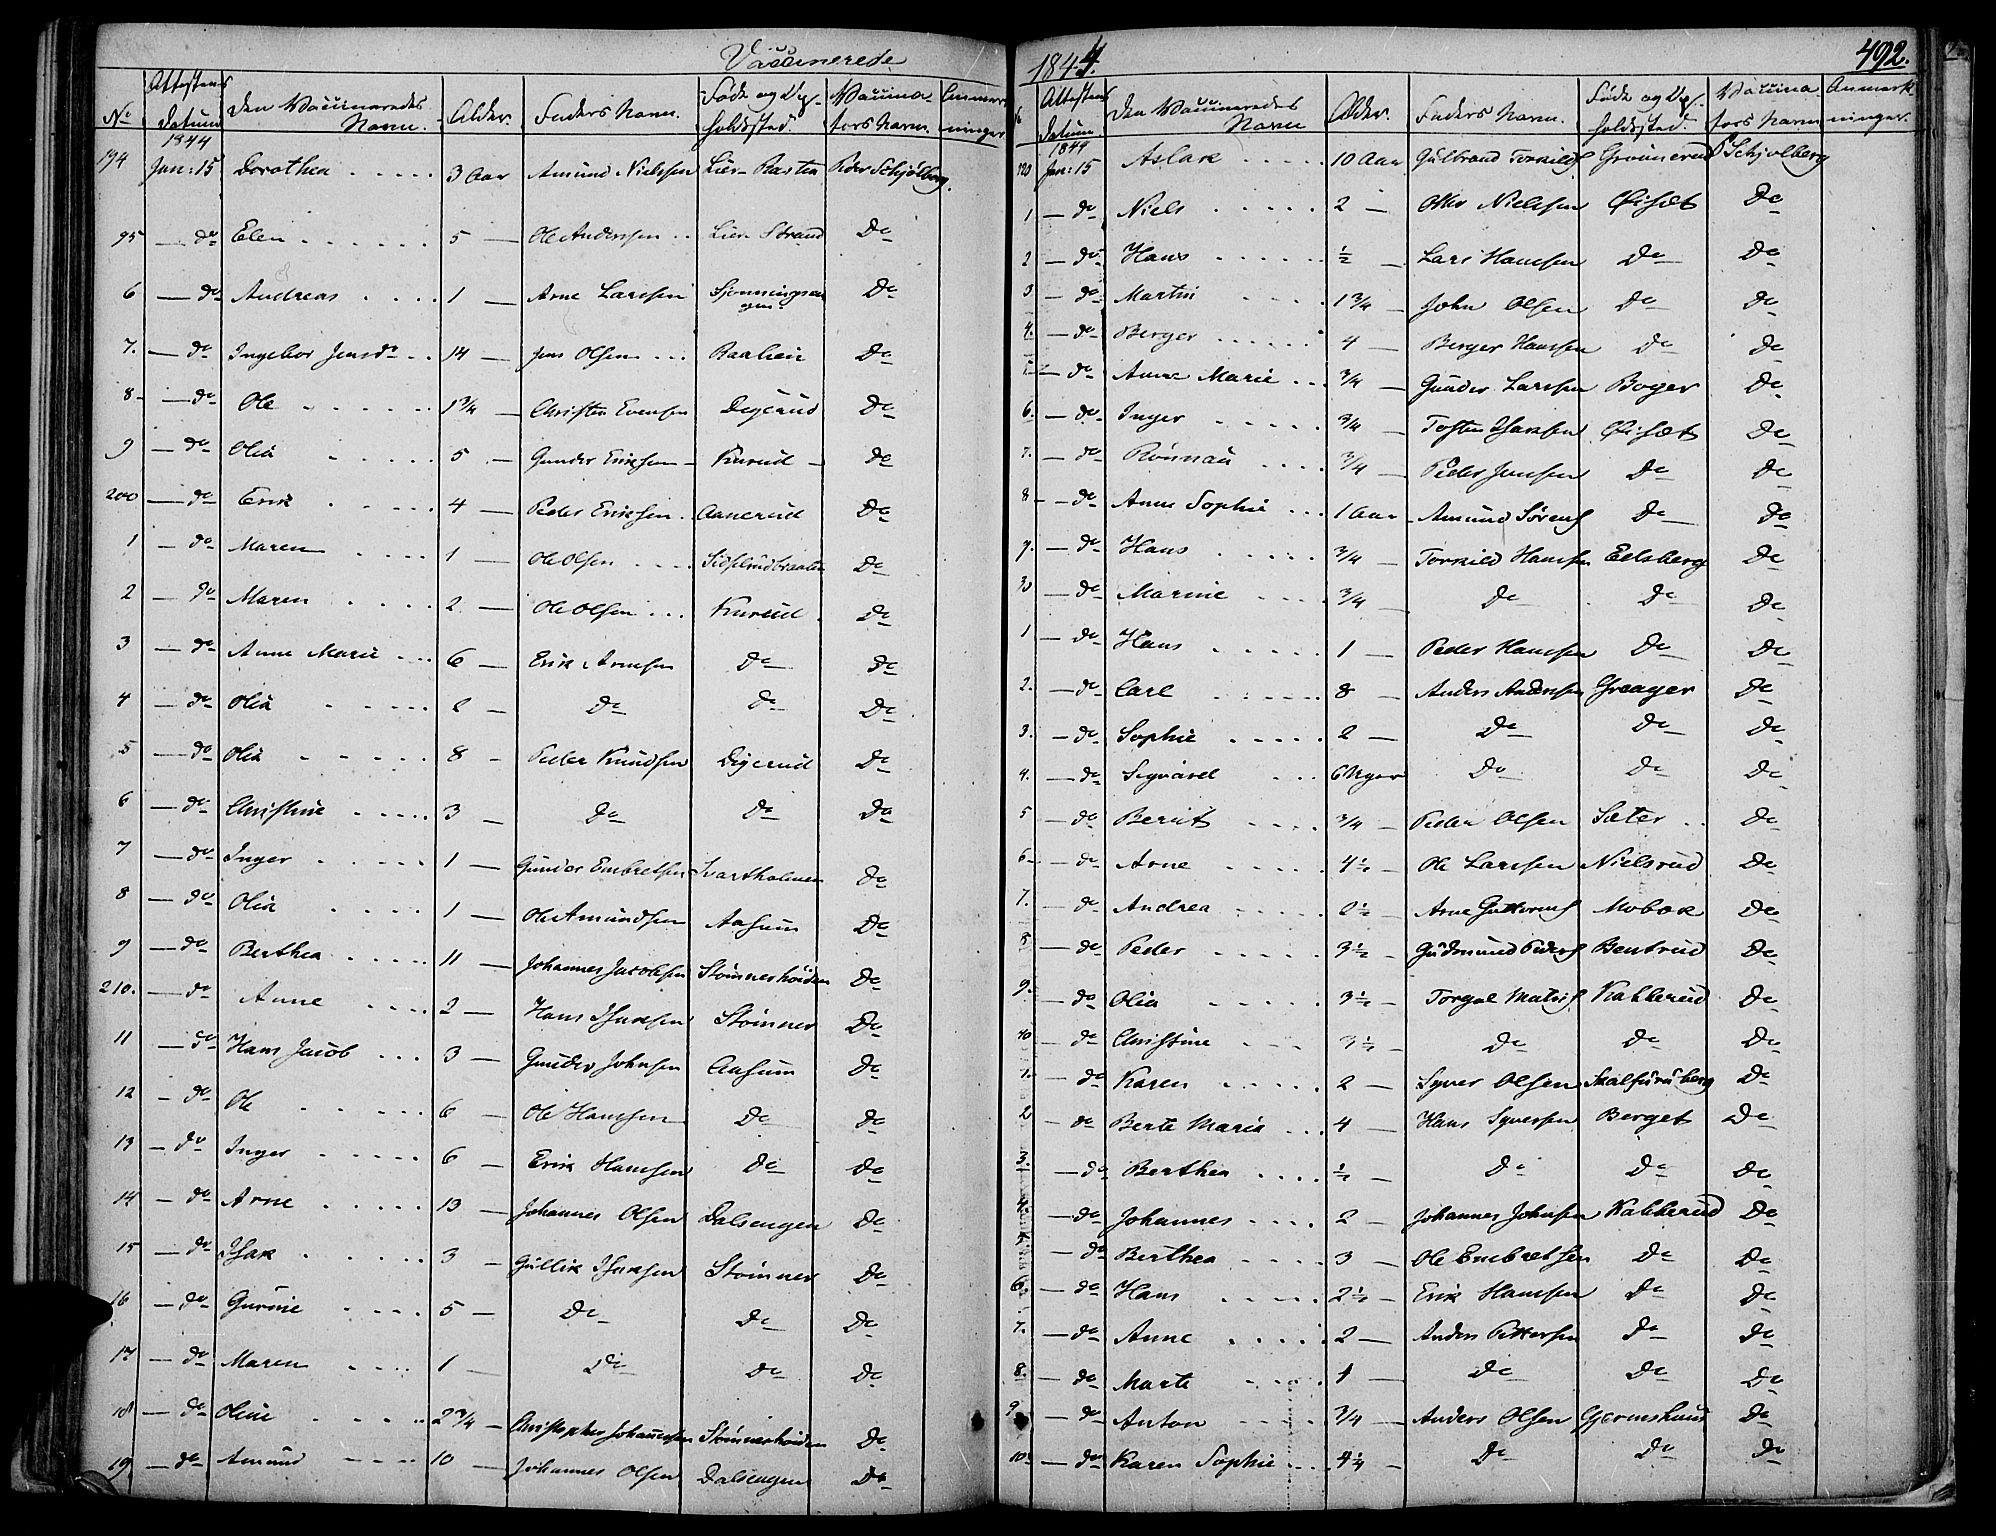 Vaccinerede
No Attestens Datum Den Vaccineredes Navn. Alder. Faders Navn. Føde og Op-holdssted. Vaccina-tors Navn. Anmærk-ninger
1844
194 Jan: 15 Dorothea 3 Aar Amund Nielssen Lier-Hasten Peder Schjølberg.
95 — do Elen 5 — Ole Anderssen Lier Strand Do
6 — do Andreas 1 — Arne Larssen Do
7. — do Ingebor Jensdr 14 — Jens Olsen Do
8 — do Ole 1 3/4 — Christen Evensen Digerud Do
9 — do Olia 5 — Gunder Eriksen Knrud Do
200 — do Erik 4 — Peder Eriksen Aanerud Do
1 — do Maren 1 — Ole Olsen Sidselrudbraaten Do
2 — do Maren 2 — Ole Olsen Knrud Do
3 — do Anne Marie 6 — Erik Arnesen Do Do
4 — do Olia 2 — Do Do Do
5 — do Olia 8 — Peder Knudsen Digerud Do
6 — do Christine 3 — Do Do Do
7 — do Inger 1 — Gunder Embretsen Svartholmen Do
8 — do Olia 1 — Ole Amundsen Aasum Do
9 — do Berthea 11 — Johannes Jacobsen Stømnerhøiden Do
210. — do Anne 2 — Hans Isaksen Stømner Do
11 — do Hans Jacob 3 — Gunder Johnsen Aasum Do
12 — do Ole 6 — Ole Hanssen Do Do
13 — do Inger 6 — Erik Hanssen Do Do
14 — do Arne 13 — Johannes Olsen Dalsengen Do
15 — do Isak 3 — Gullik Isaksen Stømner Do
16 — do Gurine 5 — Do Do Do
17 — do Maren 1 — Do Do Do
18 — do Oline 2 3/4 — Christopher Johannessen Stømnerhøiden Do
19 — do Amund 10 — Johannes Olsen Dalsengen Do
1844. 492.
Attestens Datum Den Vaccineredes Navn Alder. Faders Navn. Føde og Op-holdssted. Vaccina-tors Navn Anmærk-ninger.
1844
220 Jan: 15 Aslak 10 Aar Gulbrand Torkilds Grønnerud P Schjolberg
1 — do Niels 2 — Nielssen Øisæt Do
2 — do Hans 1/2 — Lars Hanssen Do Do
3 — do Martin 1 3/4 — John Olsen Do Do
4. — do Berger 4 — Berger Hanssen Do Do
— do Anne Marie 3/4 — Gunder Larssen Boger Do
6. — do Inger 3/4 — Tosten Isaksen Øisæt Do
7. — do Rønnau 3/4 — Peder Jenssen Do Do
8 — do Anne Sophie 1 Aar Amund Sørens Do Do
9. — do Hans 3/4 — Torkild Hanssen Eelsberg Do
30 — do Marine 3/4 — Do Do Do
1 — do Hans 1 — Peder Hanssen Do Do
2. — do Carl 8 — Anders Anderssen Greager Do
3. — do Sophie 2 — Do Do Do
4. — do Segvard 6 Uger Do Do Do
5 — do Berut 3/4 — Peder Olsen Sæter Do
6 — do Arne 4 1/2 — Ole Larssen Nielsrud Do
7. — do Andrea 2 1/2 — Arne Guttorms Mobæk Do
8 — do Peder 3 1/2 — Gudmund Peders Bentrud Do
9. — do Olia 3 1/2 — Torgal Mats Kabberud Do
40 — do Christine 3 1/2 — Do Do Do
1. — do Karen 2 — Syver Olsen Do
2 — do Berte Maria 4 — Hans Syverssen Berget Do
3. — do Berthea 1/2 — Do Do Do
4. — do Johannes 2 — Johannes Johnsen Kabberud Do
— do Berthea 3 — Ole Embretsen Do Do
6. — do Hans 2 1/2 — Erik Hanssen Do Do
7. — do Anne 2 — Anders Pettersen Do Do
8. — do Marte 1 — Do Do Do
9 — do Anton 3/4 — Anders Olsen Gjermshuus Do
10 — do Karen Sophie 4 1/4 — Do Do Do